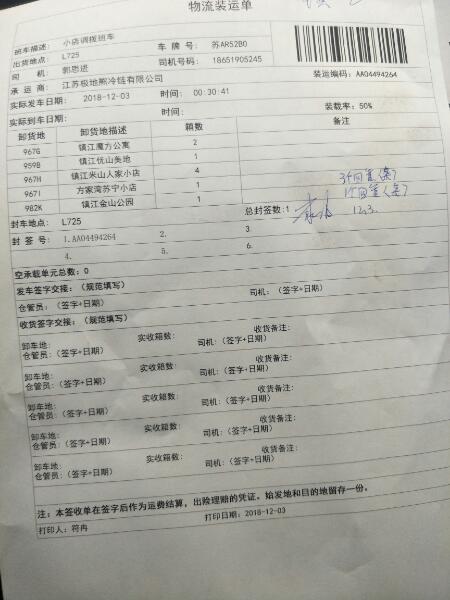 物流装运单
班车描述： 小店调拨班车
出货地点： L725 车 牌 号： 苏AR52B0
司 机： 郭思进 司机号码： 18651905245
承 运 商： 江苏极地熊冷链有限公司 装运编码：AA04494264
实际发车日期： 2018-12-03 时间： 00:30:41
实际到车日期： 时间： 装载率：50%
卸货地 卸货地描述 箱数 备注
967G 镇江魔方公寓 2
959B 镇江优山美地 1
967H 镇江米山人家小店 4
967I 方家湾苏宁小店 1
982K 镇江金山公园 1
12.3.
封车地点： L725 总封签数：1
封 签 号： 1.AA04494264 2. 3.
4. 5. 6.
空承载单元总数：0
发车签字交接：（规范填写）
仓管员：（签字+日期） 司机：（签字+日期）
收货签字交接：（规范填写）
卸车地： 实收箱数： 收货备注：
仓管员：（签字+日期） 司机：（签字+日期）
卸车地： 实收箱数： 收货备注：
仓管员：（签字+日期） 司机：（签字+日期）
卸车地： 实收箱数： 收货备注：
仓管员：（签字+日期） 司机：（签字+日期）
卸车地： 实收箱数： 收货备注：
仓管员：（签字+日期） 司机：（签字+日期）
卸车地： 实收箱数： 收货备注：
仓管员：（签字+日期） 司机：（签字+日期）
注：本签收单在签字后作为运费结算，出险理赔的凭证。始发地和目的地留存一份。
打印人：符冉 打印日期：2018-12-03